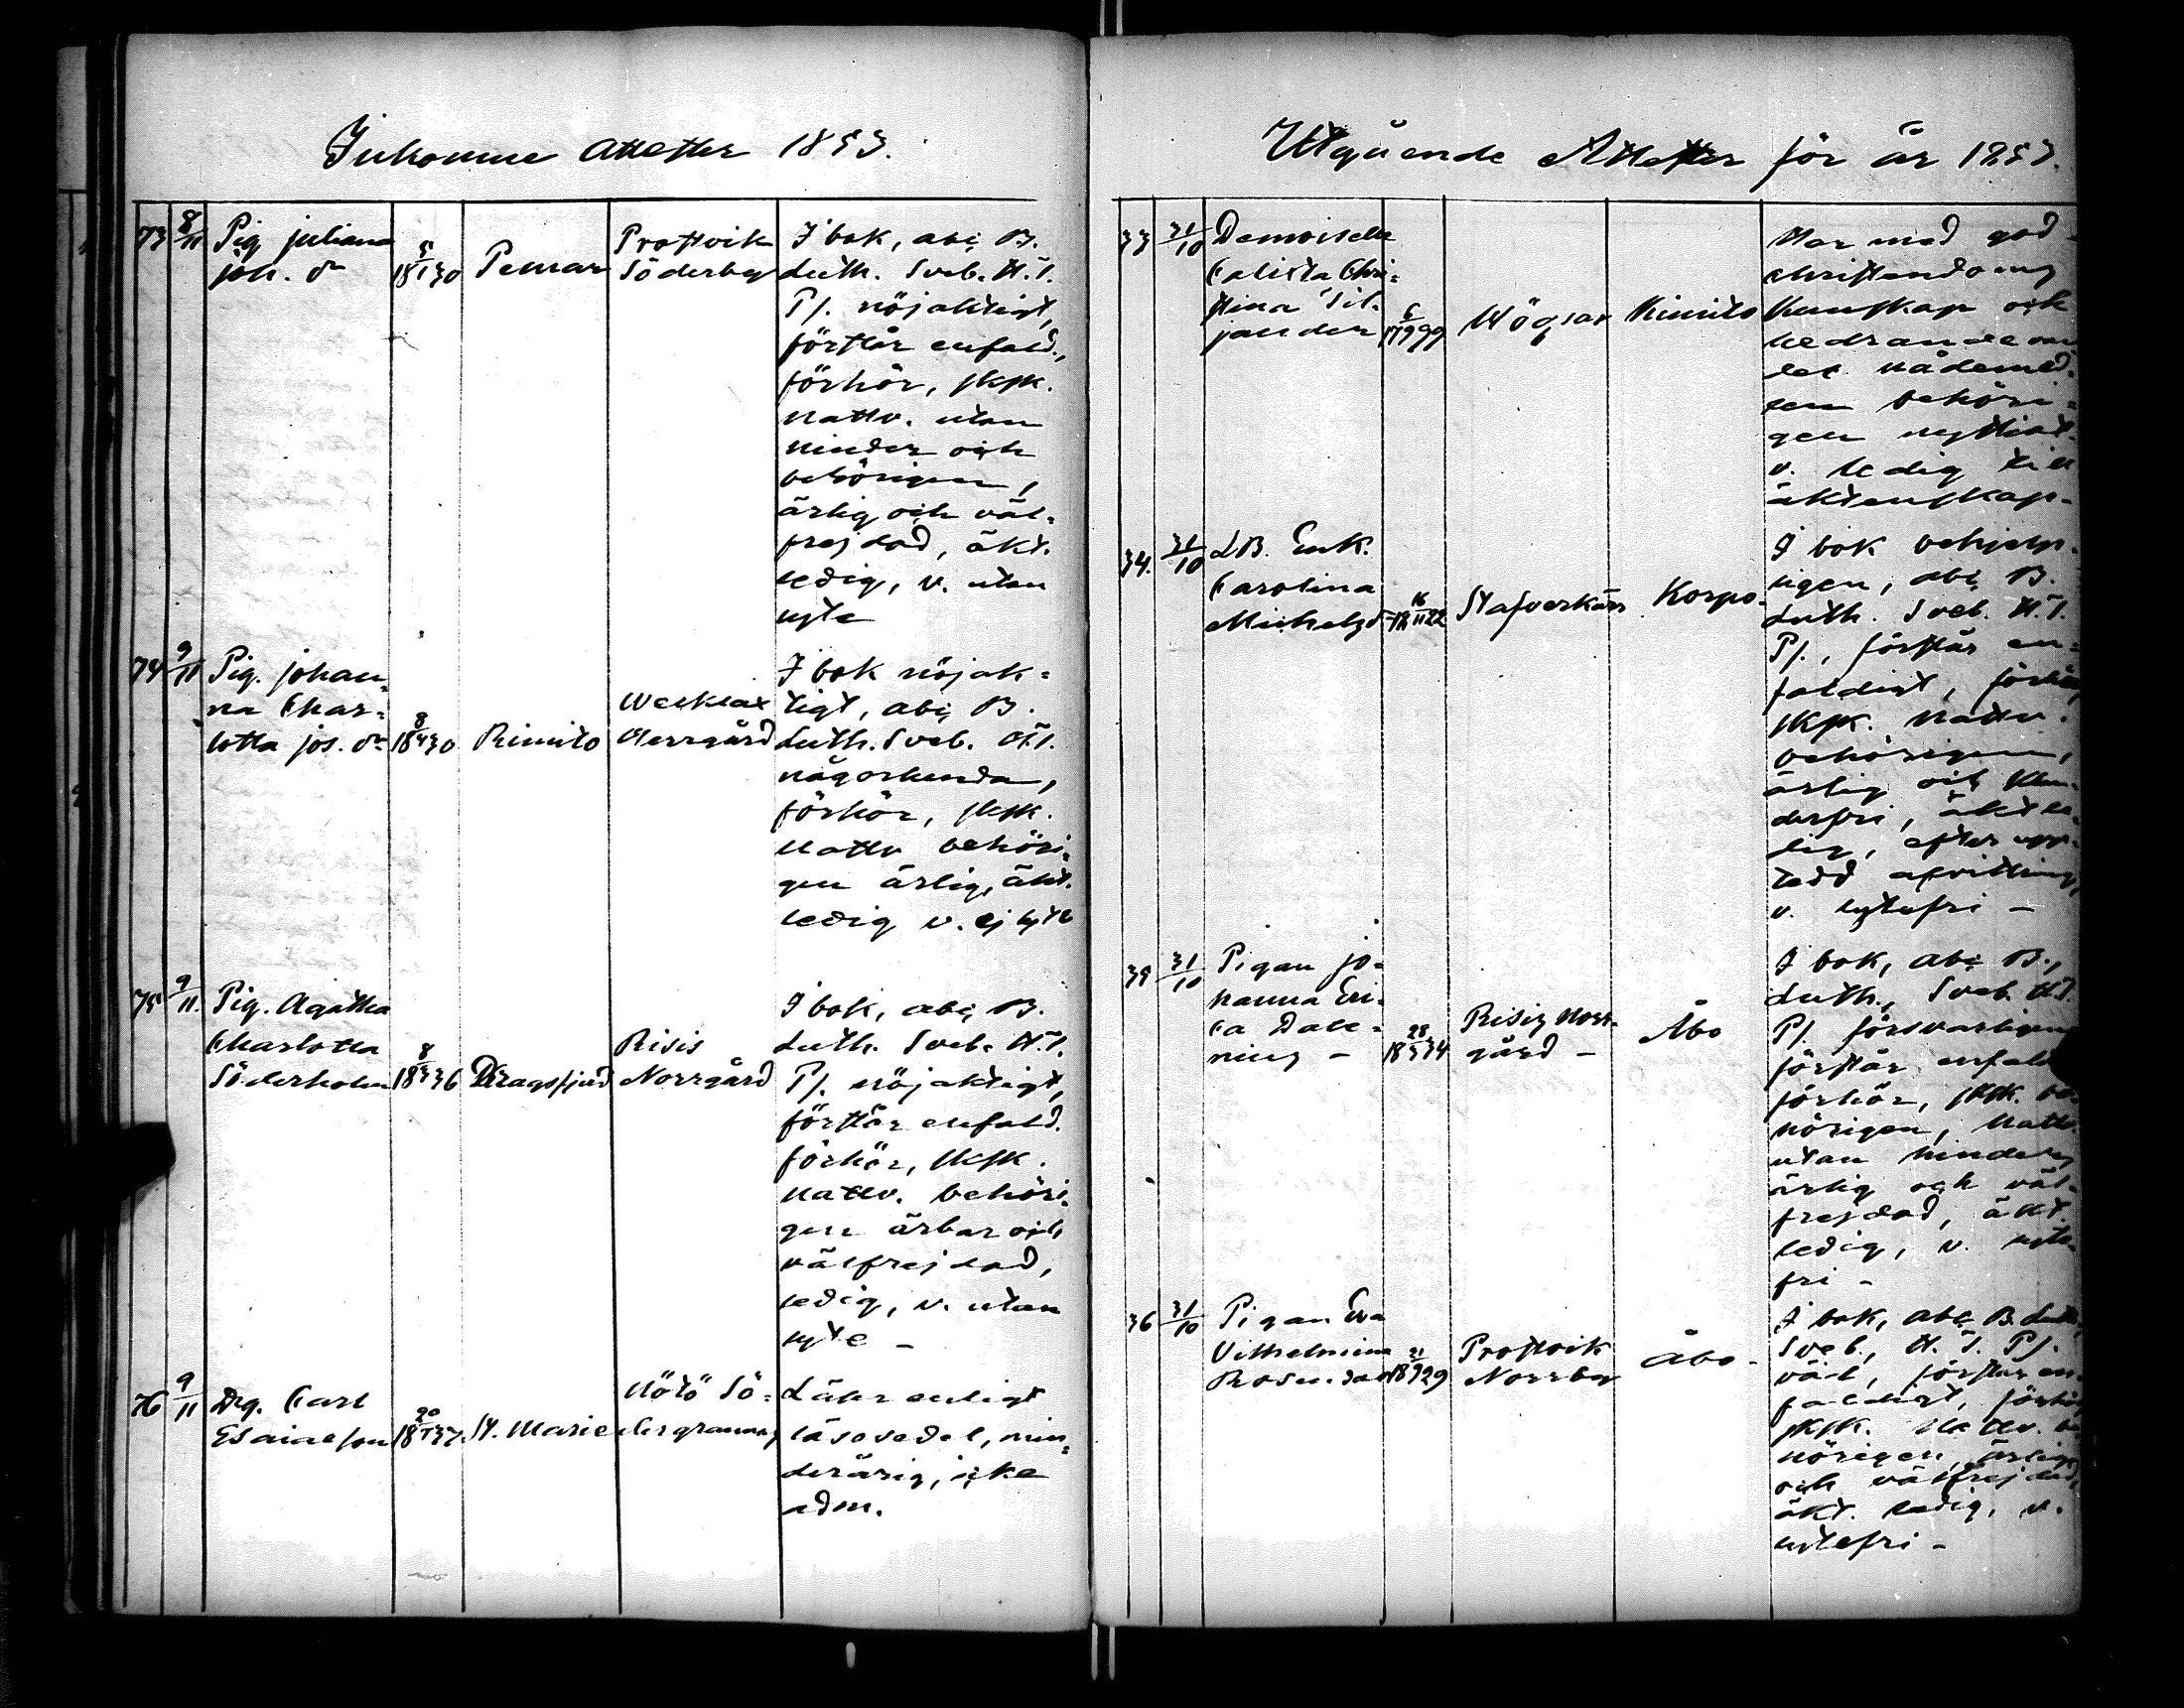 Inkomne attester 1853.
73 8/11 Pig Juliana Joh. dr 18 5/1 30 Pemar Prostvik Söderby I bok, abc, B.
Luth. Sveb. H.T.
Ps. nöjaktigt,
förstår enfald.,
förhör, skpk.
nattv. utan
hinder och
behörigen,
ärlig och väl-
frejdad, äkt.
ledig, v. utan
lyte
74 9/11 Pig. Johan-
na Char-
lotta Jos. dr 18 8/4 30 Rimito Werklax Herrgård
I bok nöjak-
tigt, abc, B.
Luth. Sveb. H.T.
någorlunda,
förhör, skpk.
nattv behöri-
gen ärlig, äkt.
ledig v. ej lyte
75 9/11. Pig. Agatha
Charlotta
Söderholm 18 8/3 36 Dragsfjerd Risis Norrgård
I bok, abc, B.
Luth. Sveb. H.T.
Ps. nöjaktigt,
förstår enfald.
förhör, skpk.
nattv. behöri-
gen ärbar och
välfrejdad,
ledig, v. utan
lyte -
76 9/11 Drg. Carl
Esaiaeson 18 20/1 37. St. Marie Nötö Sö-
dergrannas
Lähr enligt
läsesedel, min-
derårig, icke
adm.
Utgående Attester för år 1853.
33 31/10 Demoiselle
Calixta Chri-
stina Sil-
jander 17 6/9 99 Högsar Rimito
Har med god
christendoms
kunskap och
hedrande van
del nådemed-
len behöri-
gen nyttjat.
v. ledig till
äktenskap-
34. 31/10 LB. Enk.
Carolina
Michelsdr 18 16/11 22 Stafverkärr Korpo-
I bok behjelp-
ligen, abc, B.
Luth. Sveb. H.T.
Ps., förstår en-
faldigt, förhör,
skpk. nattv.
behörigen,
ärlig och klan-
derfri, äkt le-
dig, efter upp-
tedd afvittring,
v. lytefri -
35 31/10 Pigan Jo-
hanna Eri-
ca Dale-
ning - 18 28/5 34 Risis Norr-
gård - Åbo
I bok, abc B.,
Luth., Sveb. H.T.
Ps. försvarligen
förstår enfald
förhör, skpk. be
hörigen, nattv.
utan hinder,
ärlig och väl-
frejdad, äkt.
ledig, v. lyte-
fri -
36 31/10 Pigan Eva
Vilhelmina
Rosendal 18 21/9 29 Prostvik
Norrby Åbo -
I bok, abc B. Luth,
Sveb., H.T. Ps.
väl, förstår en-
faldigt, förhör
skpk. nattv. be
hörigen, ärlig
och välfrejdad,
äkt. ledig, v.
lytefri -